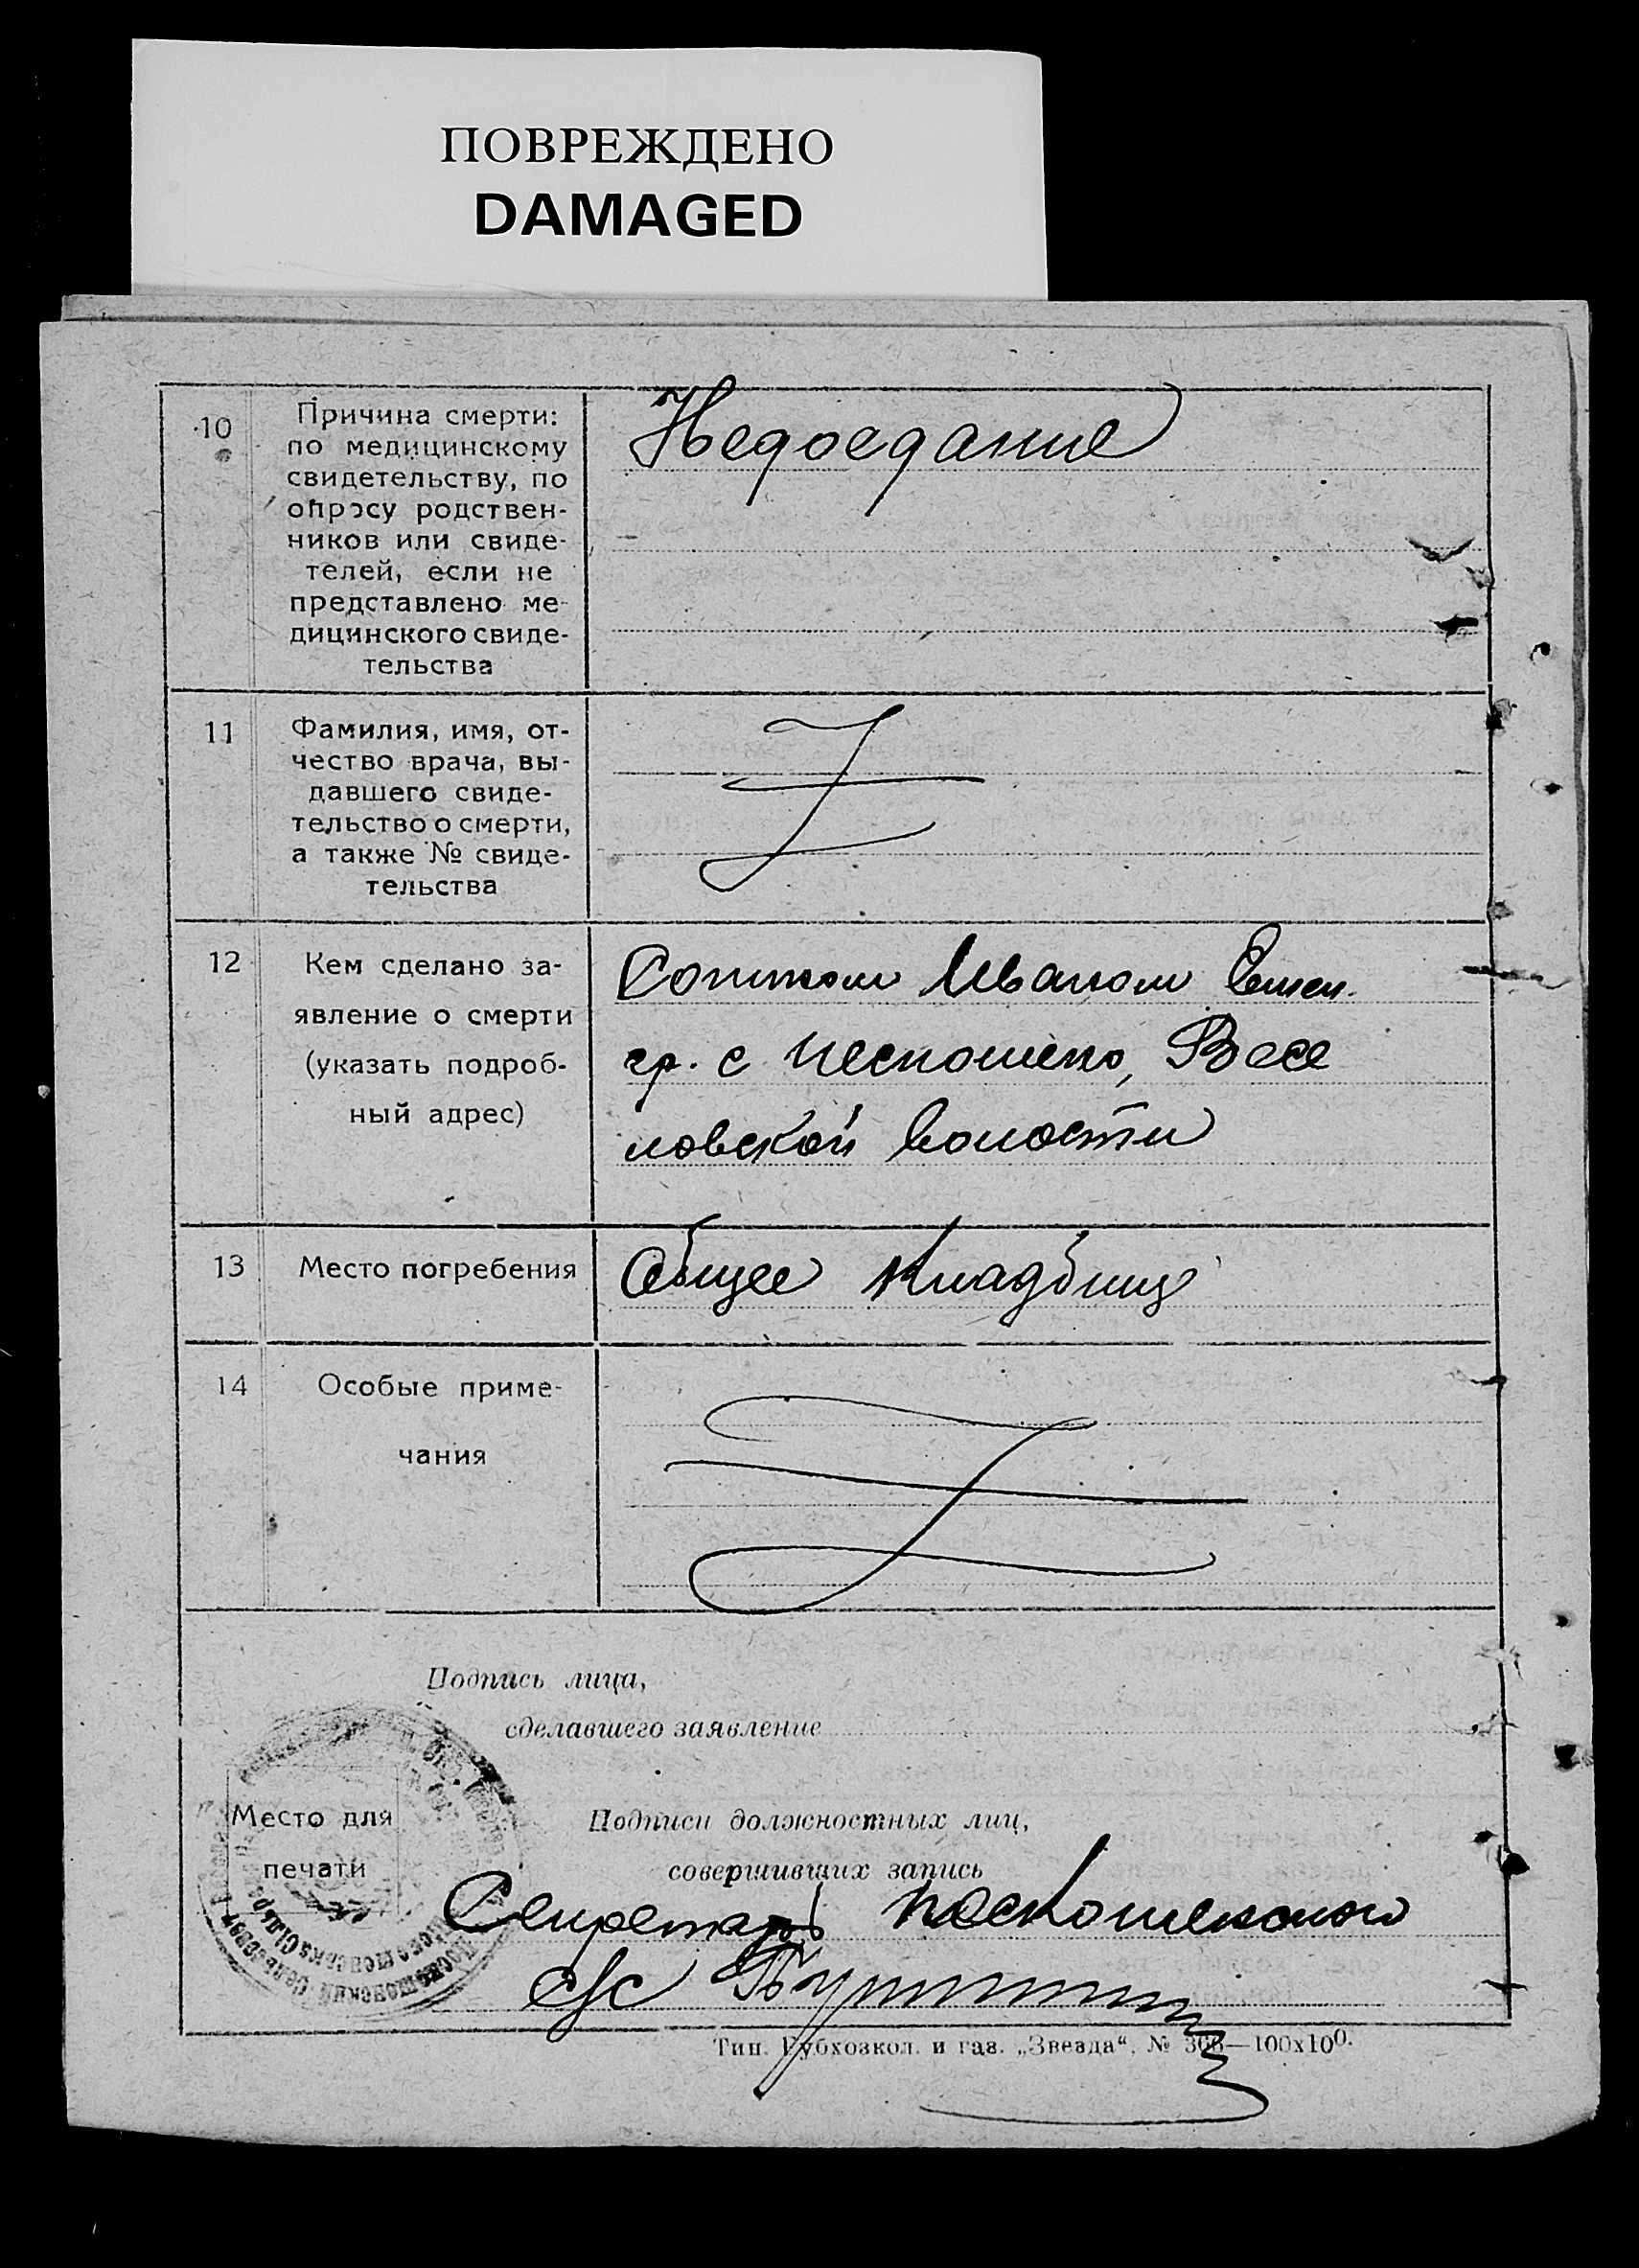 ПОВРЕЖДЕНО
DAMAGED
10
Причина смерти:
по медицинскому
свидетельству, по
опросу родствен-
ников или свиде-
телей, если не
представлено ме-
дицинского свиде-
тельства
Недоедание
11
Фамилия, имя, от-
чество врача, вы-
давшего свиде-
тельство о смерти,
а также № свиде-
тельства
12
Кем сделано за-
явление о смерти
(указать подроб-
ный адрес)
Иваном
гр. с Пескошено, Весе
ловской волости
13
Место погребения
Общее кладбище
14
Особые приме-
чания
Подпись лица,
сделавшего заявление
Место для
печати
Подписи должностных лиц,
совершивших запись
Секретарь
с/с
Тип. Губхозкол. и газ. „Звезда“, № 366—100х100.